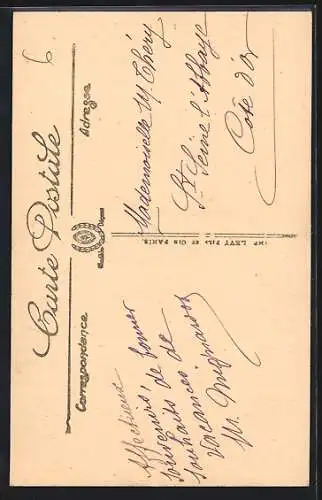 Carte Postale
Correspondance
Adresse
Affectueux
souvenirs, de bonnes
souhaits de de
vacances
M. Mignardot
Mademoiselle M. Théry
St Seine l'Abbaye
Côte d'Or
IMP. LEVY FILS ET CIE PARIS.
6.